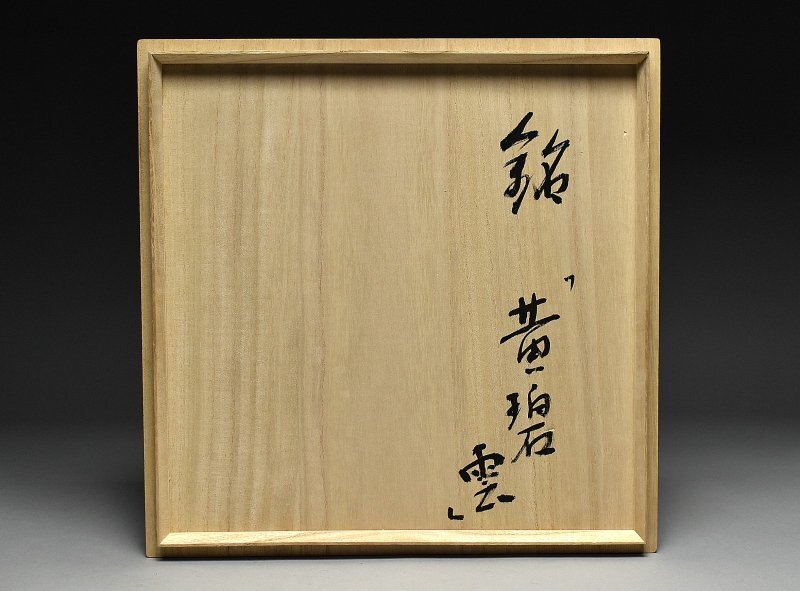 銘 「黄碧雲」